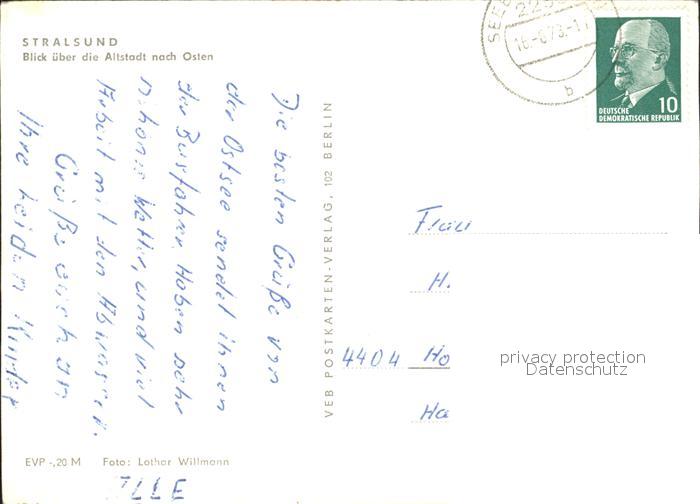 STRALSUND
Blick über die Altstadt nach Osten
Die besten Grüße von
der Ostsee sendet ihnen
der Busfahrer. Haben sehr
schönes Wetter, und viel
Arbeit mit den
Grüße auch an
Ihre beiden Kinder
VEB POSTKARTEN-VERLAG, 102 BERLIN
SEEB
225
16.-6.73.-17
b
DEUTSCHE
DEMOKRATISCHE REPUBLIK
10
Frau
H.
4404 Ho
Ha
privacy protection
Datenschutz
EVP -,20 M Foto: Lothar Willmann